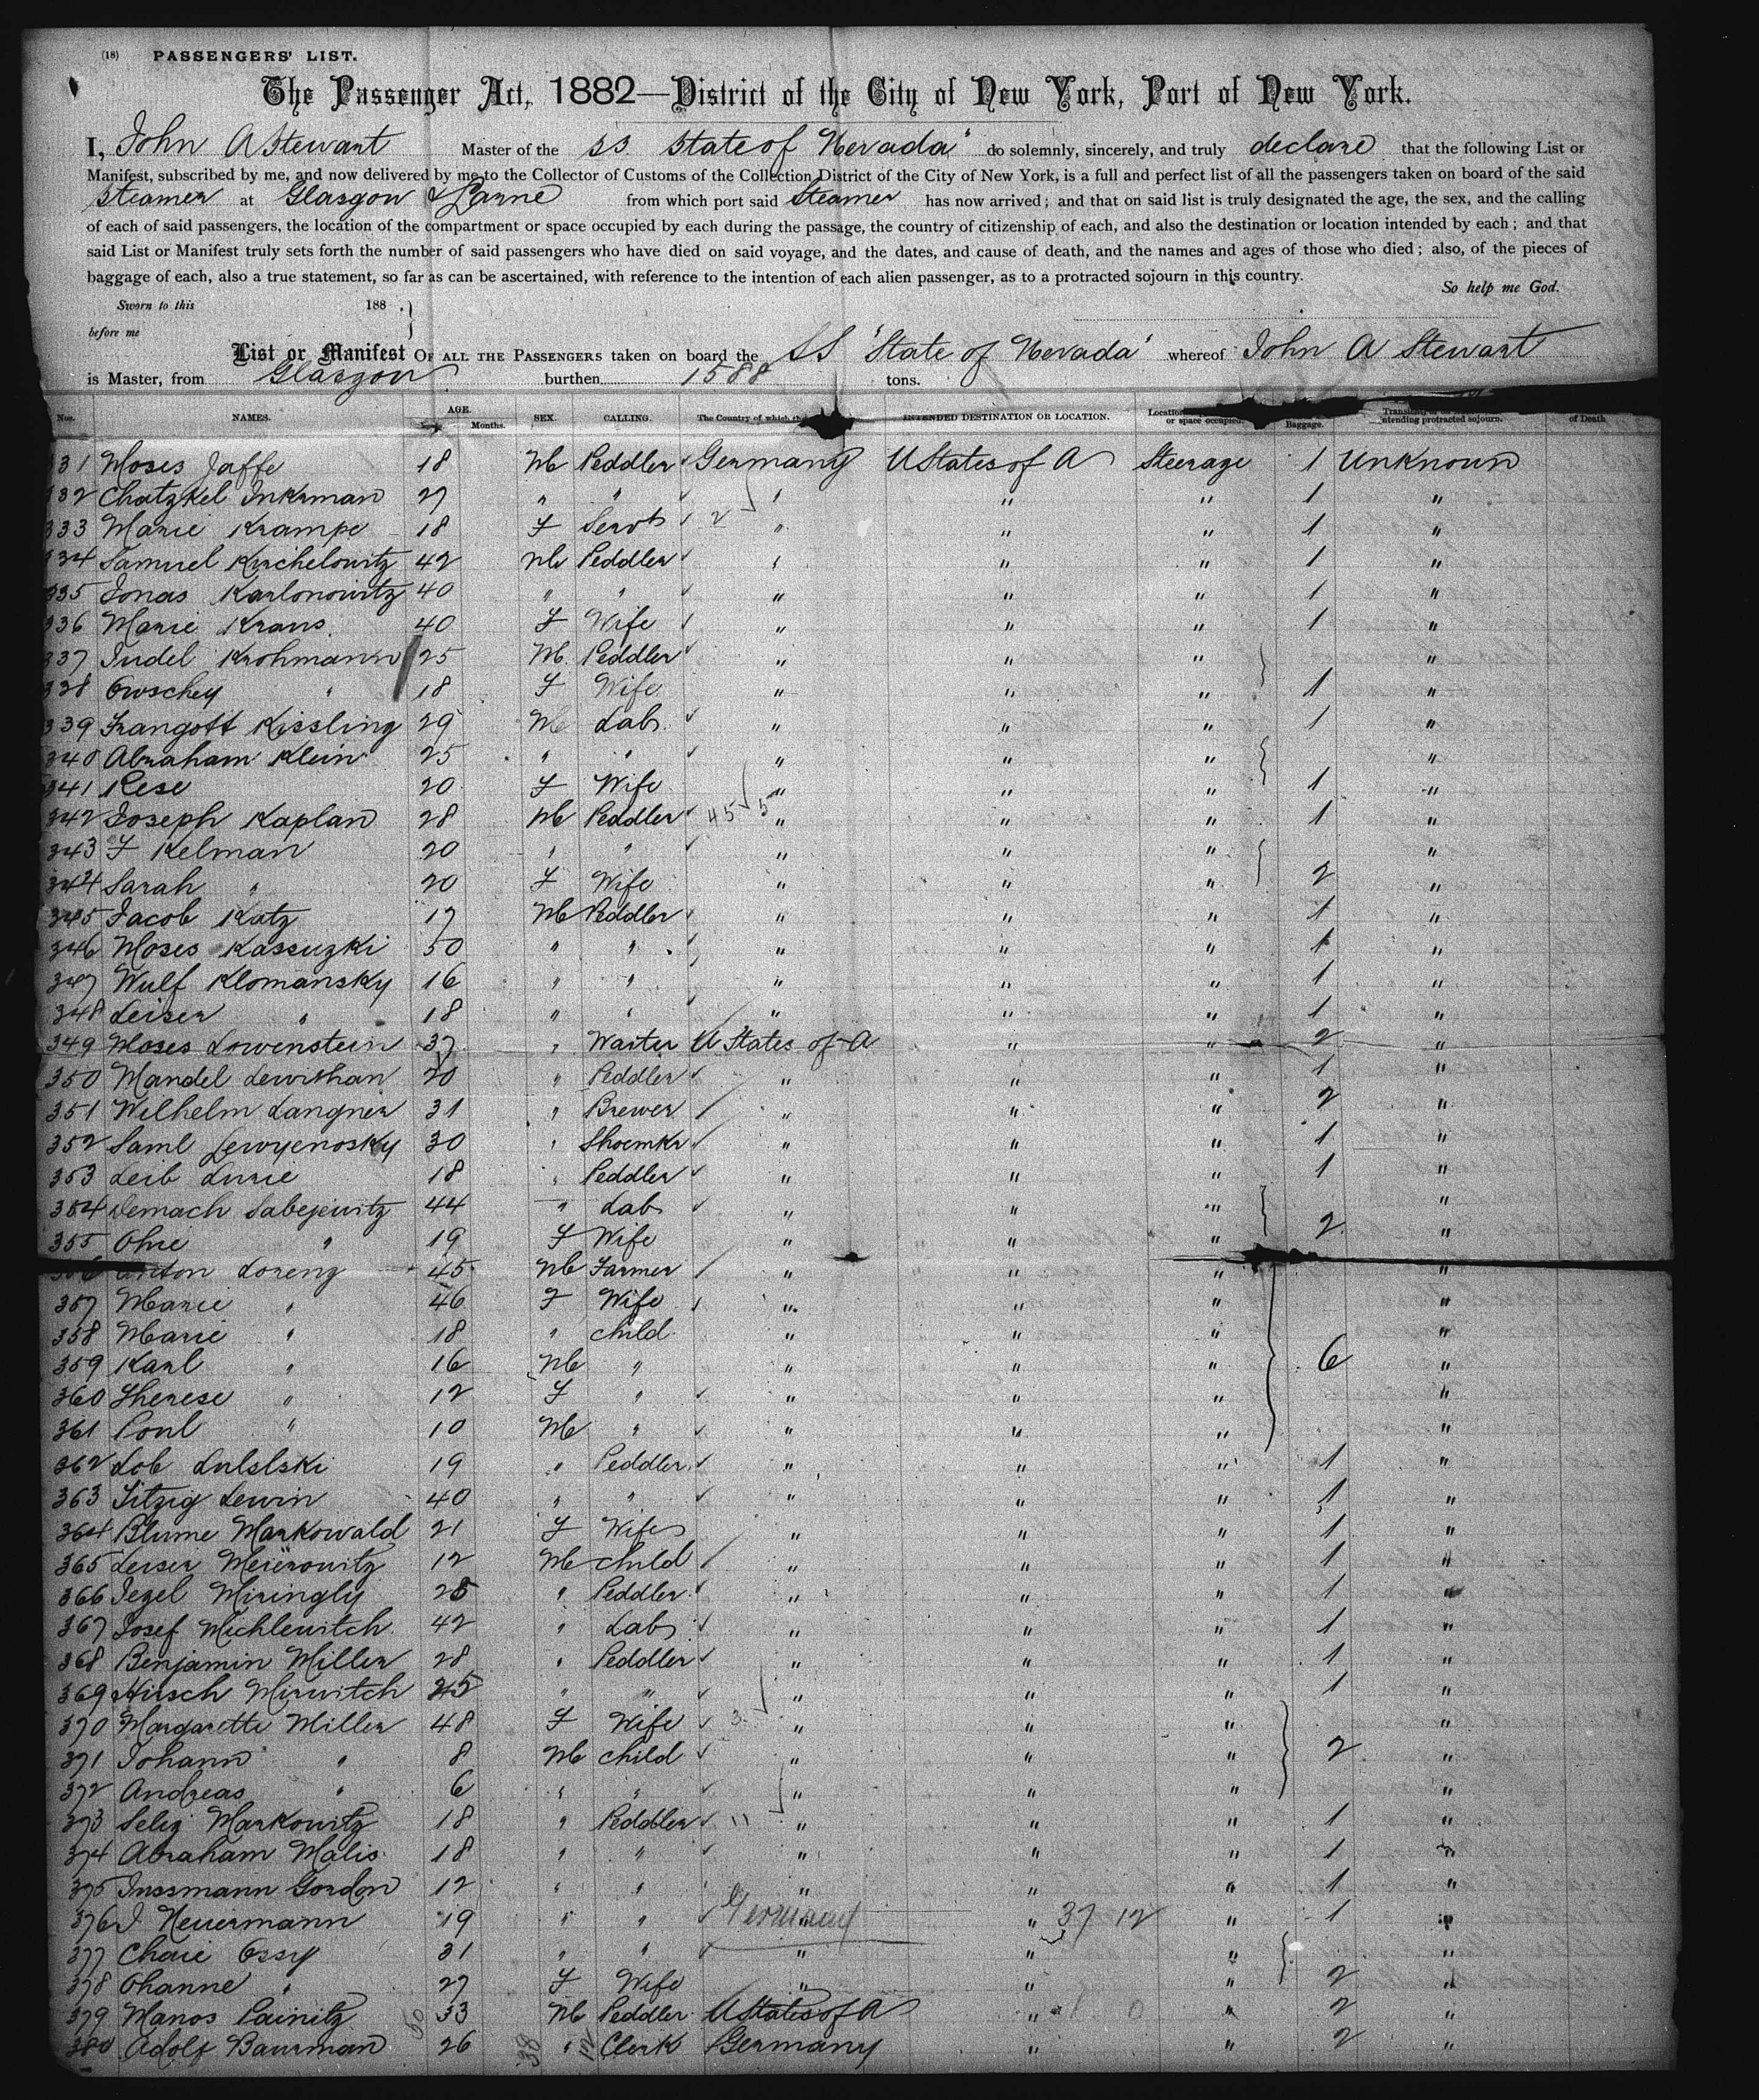 (18) PASSENGERS' LIST.
The Passenger Act, 1882—District of the City of New York, Port of New York.
I, John A Stewart Master of the SS State of Nevada" do solemnly, sincerely, and truly declare that the following List or
Manifest, subscribed by me, and now delivered by me to the Collector of Customs of the Collection District of the City of New York, is a full and perfect list of all the passengers taken on board of the said
Steamer at Glasgow & Larne from which port said Steamer has now arrived; and that on said list is truly designated the age, the sex, and the calling
of each of said passengers, the location of the compartment or space occupied by each during the passage, the country of citizenship of each, and also the destination or location intended by each; and that
said List or Manifest truly sets forth the number of said passengers who have died on said voyage, and the dates, and cause of death, and the names and ages of those who died; also, of the pieces of
baggage of each, also a true statement, so far as can be ascertained, with reference to the intention of each alien passenger, as to a protracted sojourn in this country.
So help me God.
Sworn to this 188 .}
before me
List or Manifest OF ALL THE PASSENGERS taken on board the SS "State of Nevada" whereof John A Stewart
is Master, from Glasgow burthen 1588 tons.
Nos. NAMES. AGE. Months. SEX. CALLING. The Country of which INTENDED DESTINATION OR LOCATION. or space occupied. Baggage. intending protracted sojourn. of Death
331 Moses Jaffe 18 M Peddler Germany U States of A Steerage 1 Unknown
332 Chatzkel Inkrman 27 " " " " " 1 "
333 Marie Krampe 18 F Servt " " " 1 "
334 Samuel Kirchelowitz 42 M Peddler " " " 1 "
335 Jonas Karlonowitz 40 " " " " " 1 "
336 Marie Kraus 40 F Wife " " " 1 "
337 Judel Krohmann 25 M Peddler " " " "
338 Owschey " 18 F Wife " " " 1 "
339 Frangott Kissling 29 M Lab " " " 1 "
340 Abraham Klein 25 " " " " " "
341 Rese 20 F Wife " " " 1 "
342 Joseph Kaplan 28 M Peddler " " " 1 "
343 F Kelman 20 " " " " " "
344 Sarah " 20 F Wife " " " 2 "
345 Jacob Katz 17 M Peddler " " " 1 "
346 Moses Kassuzki 50 " " " " " 1 "
347 Wulf Klomansky 16 " " " " " 1 "
348 Leiser " 18 " " " " " 1 "
349 Moses Lowenstein 37 " Waiter U States of A " " 2 "
350 Mandel Lewithan 20 " Peddler " " " 1 "
351 Wilhelm Langner 31 " Brewer " " " 2 "
352 Saml Lewyenosky 30 " Shoemkr " " " 1 "
353 Leib Lurie 18 " Peddler " " " 1 "
354 Demach Labejewitz 44 " Lab " " " "
355 Ohne " 19 F Wife " " " 2 "
356 Anton Lorenz 45 M Farmer " " " "
357 Marie " 46 F Wife " " " "
358 Marie " 18 " child " " " "
359 Karl " 16 M " " " " 6 "
360 Therese " 12 F " " " " "
361 Poul " 10 M " " " " "
362 Lob Lulslski 19 " Peddler " " " 1 "
363 Sitzig Lewin 40 " " " " " 1 "
364 Blume Markowald 21 F Wife " " " 1 "
365 Leiser Meierowitz 12 M child " " " 1 "
366 Jezel Miringly 25 " Peddler " " " 1 "
367 Josef Michlewitch 42 " Lab " " " 1 "
368 Benjamin Miller 28 " Peddler " " " 1 "
369 Hirsch Mirwitch 25 " " " " " 1 "
370 Margarette Miller 48 F Wife " " " "
371 Johann " 8 M child " " " 2 "
372 Andreas " 6 " " " " " "
373 Selig Markowitz 18 " Peddler " " " 1 "
374 Abraham Malis 18 " " " " " 1 "
375 Jussmann Gordon 12 " " " " " 1 "
376 J Neuermann 19 " " Germany " 37 12 " 1 "
377 Chaie Ossy 31 " " " " " "
378 Ohanne " 27 F Wife " " " 2 "
379 Manos Painitz 33 M Peddler U States of A " " 2 "
380 Adolf Baurman 26 " Clerk Germany " " 2 "